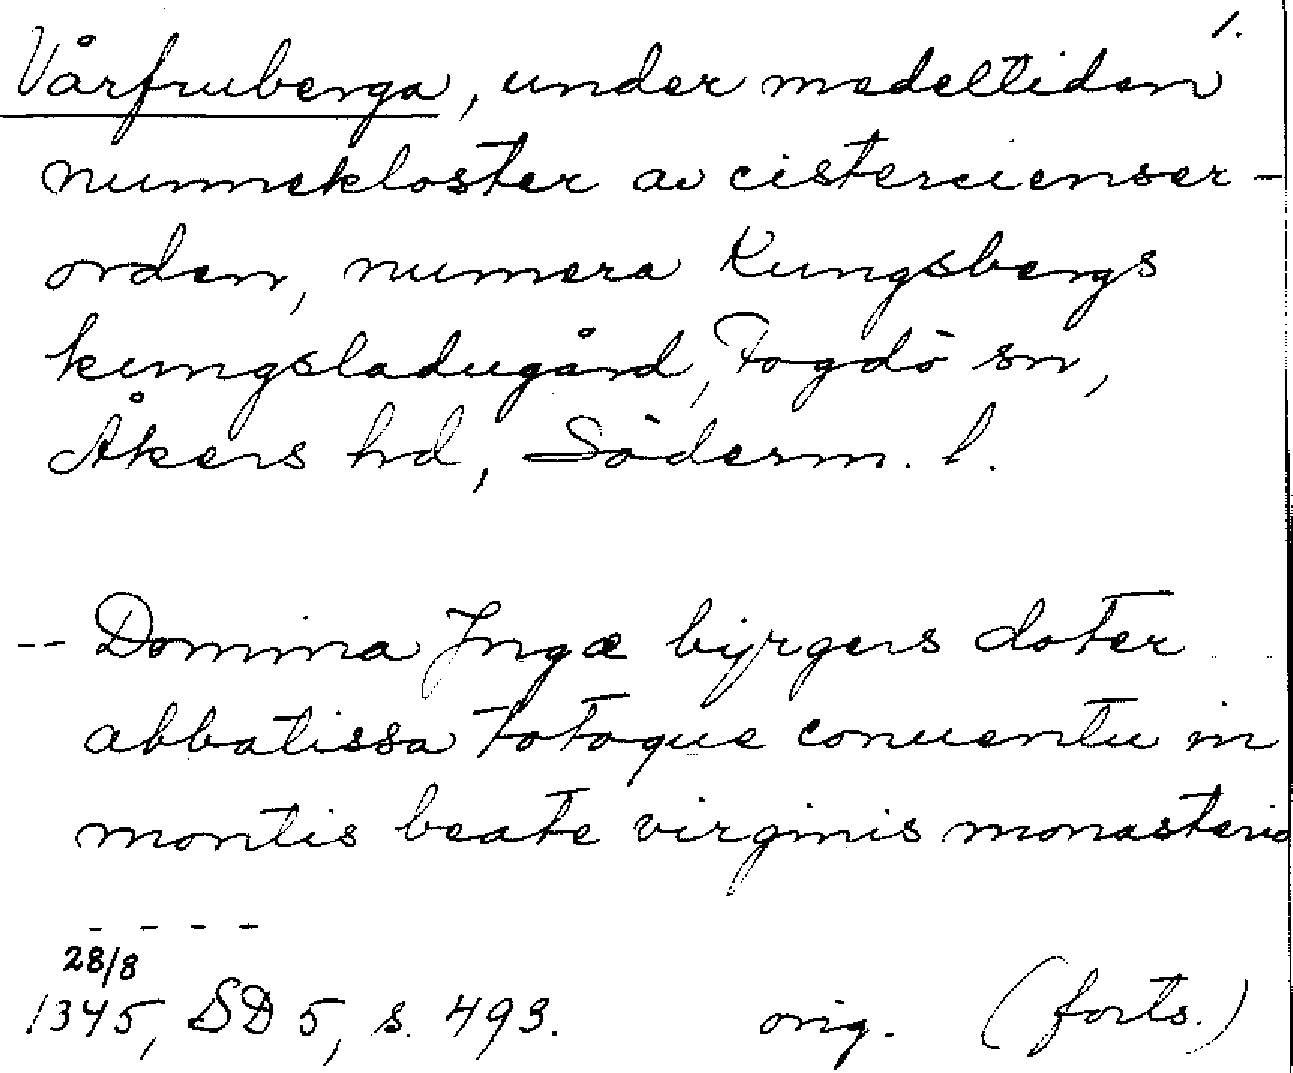 1.
Vårfruberga, under medeltiden
nunnekloster av cistercienser-
orden, numera Kungsbergs
kungsladugård, Fogdö sn,
Åkers hd, Söderm. l.
-- Domina Jngæ byrgers doter
abbatissa totoque conuentu in
montis beate virginis monasterio
- - - -
28/8
1345, SD 5, s. 493. orig. (forts.)